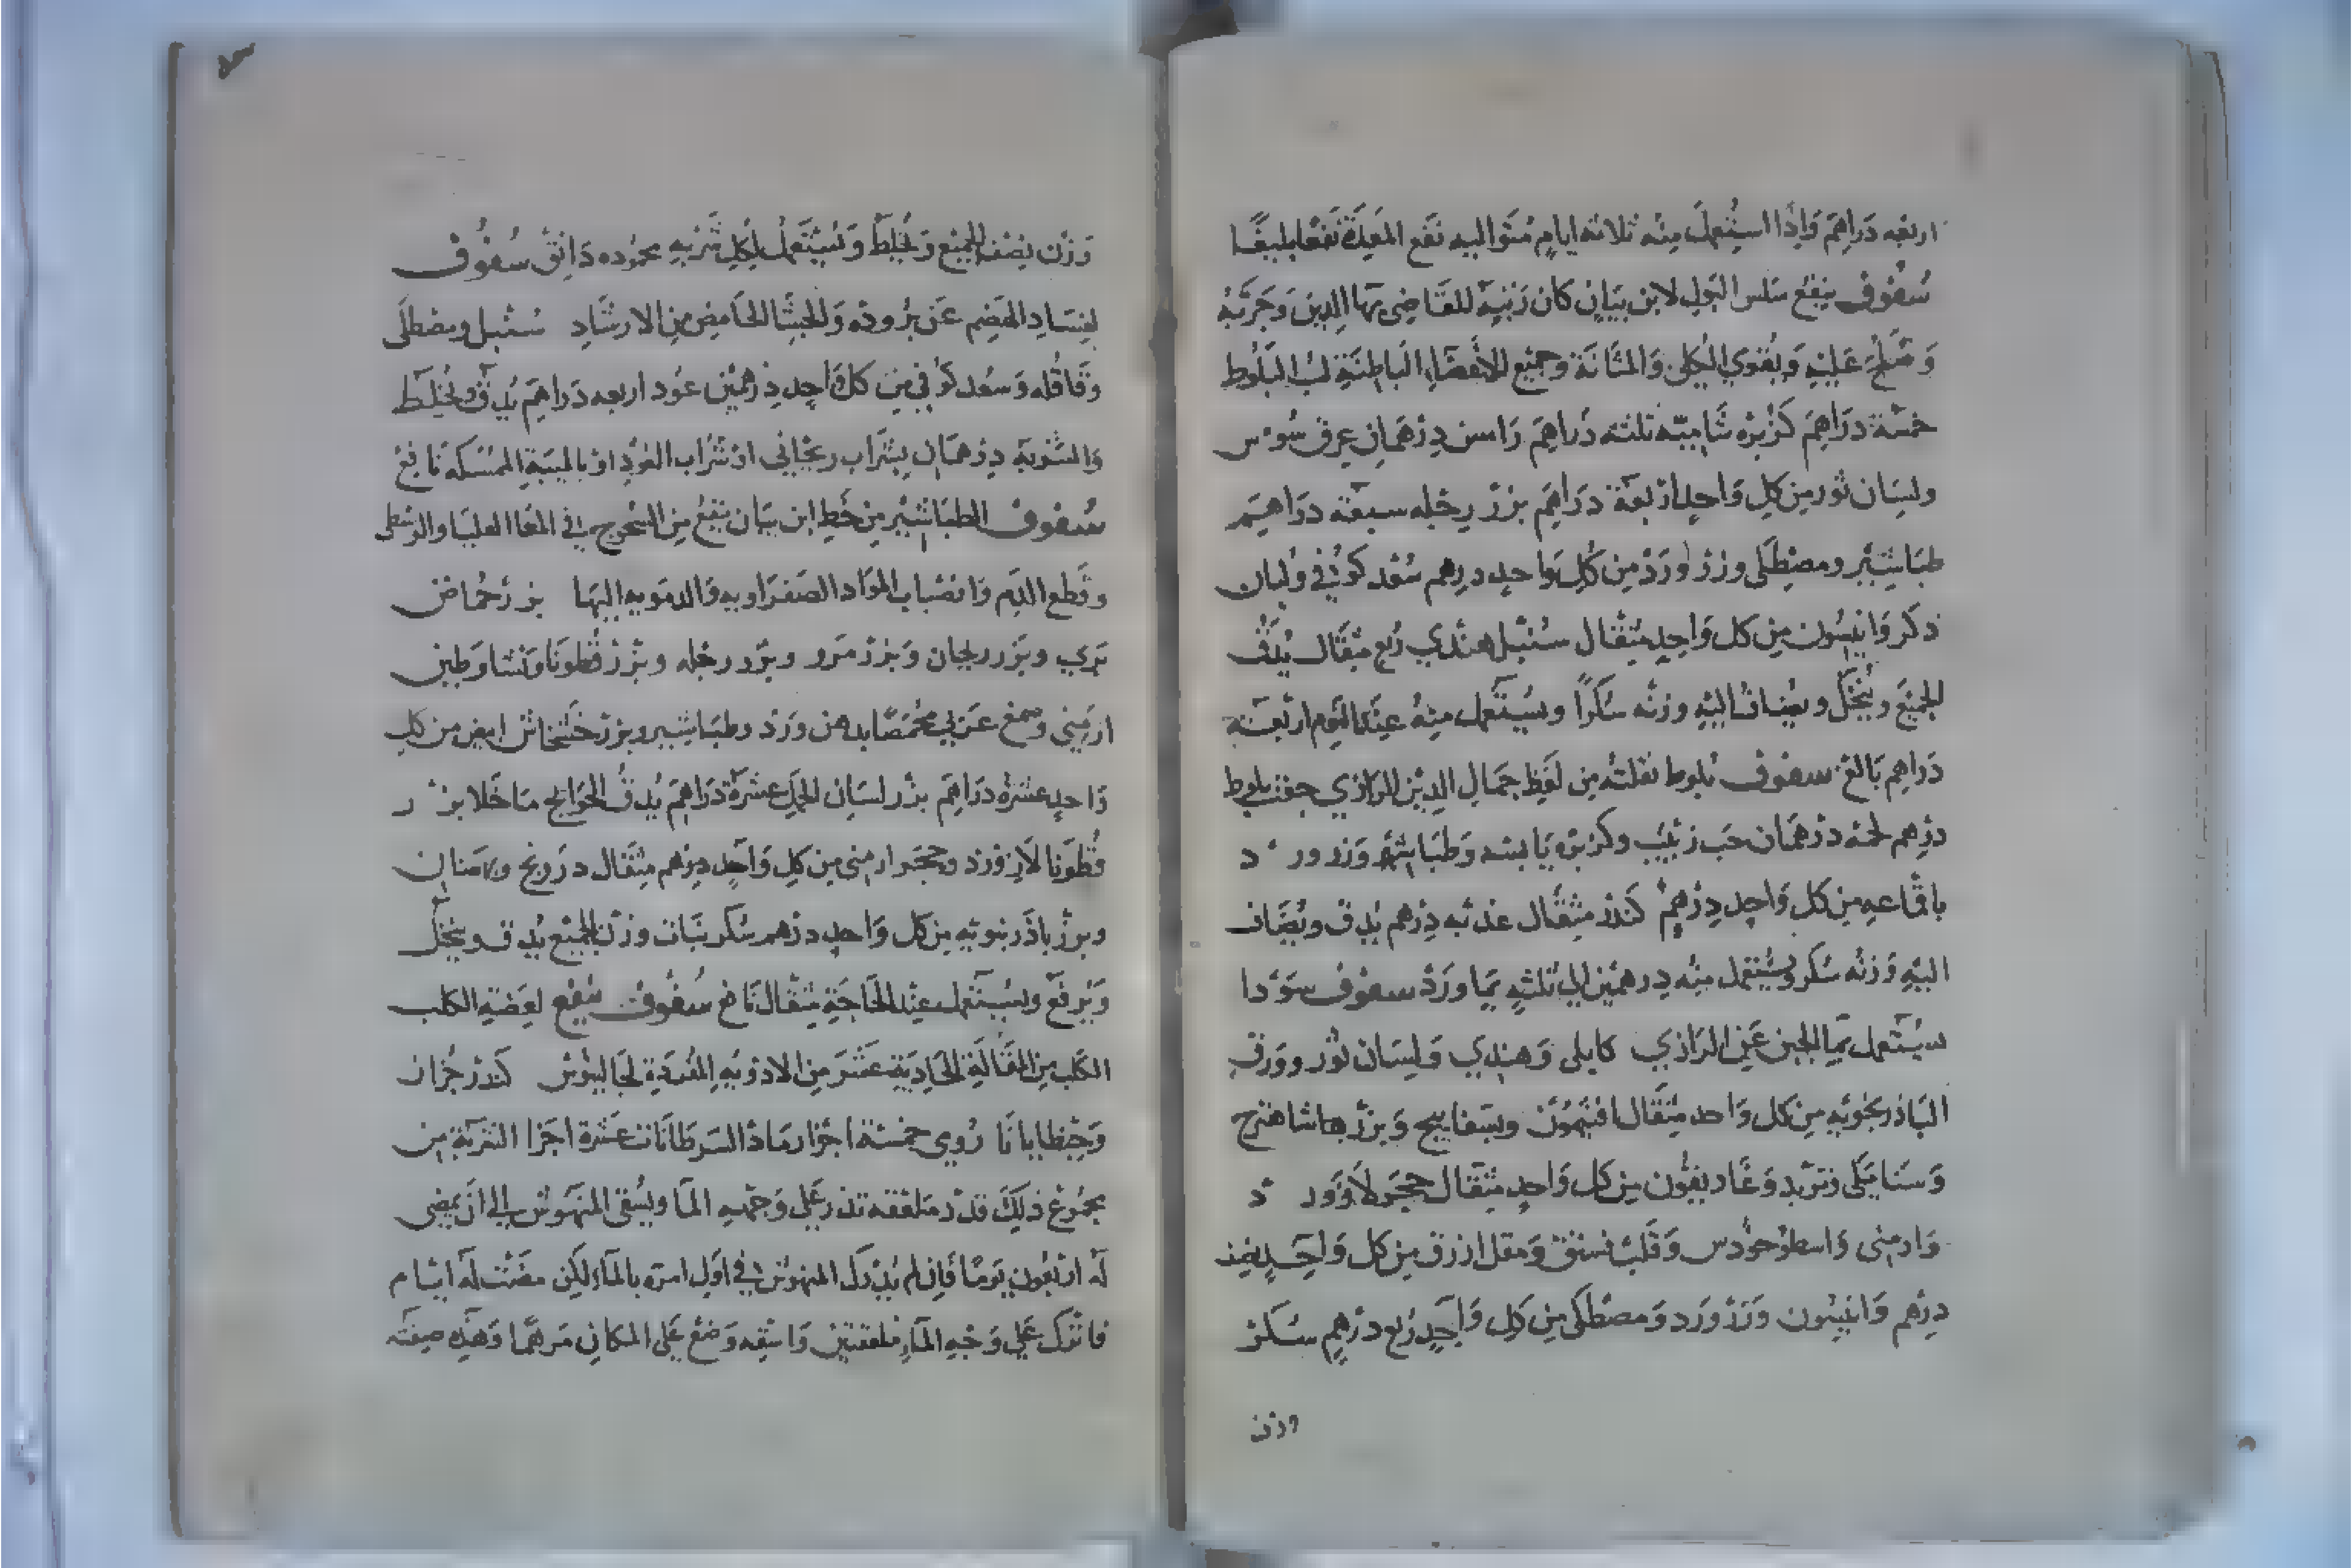 اربعه دَراهِمَ وَاِذَا استُعملَ منِه ثلاثة ايامٍ مُتَواليه نفَع المَعِدَةَ نَفعًا بليغًا
سُفُوفٌ ينفعُ سَلس البَولِ لابن بَيَانٍ كان رَتبَهُ للقَاضِى بهَا الدين وَجَرَّبَهُ
وَصَلُحَ عَليْهِ وَيُقوي الكِلى وَالمثَانَة وجميع الأعْضَاءِ البَاطِنَةِ لبُ البَلُوط
خمسَة دَرَاهِمَ كزبره شَاميّه ثلثه دَراهِمَ رَاسن دِرْهَمَانِ عِرق سُوْس
ولِسَان ثور من كلِ وَاحِدٍ اربعَة درَاهِمَ بزر رِجْله سبعَة دَرَاهِمَ
طبَاشيْر ومصْطَكَى وزِرْ وَرَدْ من كُلِ وَاحدٍ درهم سُعْد كوُفي ولُبان
ذكر وَانيسُون مِن كل وَاحِدٍ مثقَال سُنبل هندي رُبع مثقَال يُدَقُ
الجميَع ويُنْخَل ويضُاف اليْهِ وزنه سُكرًا ويُستَعمل منِهُ عِنْد النَوم اربعَة
دَراهِم بَالغ سفوف بلوط نقلتهُ مِن لفظِ جمَال الدِيْن الرازي جفت بلوط
درْهم لحمه درْهمَان حَب زبيْب وكزبرة يَابسه وَطبَاشير وَزر ور د
باقمَاعهِ من كل وَاحِد دِرْهمٌ كندر مثقَال عذبه دِرْهم يُدق ويُضَاف
اليهِ وَزنه سُكر ويُستعمل منِه درهَميْن الى ثلثهِ بَما وَرَدْ سفوفُ سَوَدا
يسُتعمل بمَا الجبن عَن الرازي كابلى وَهندِي وَلسَان ثور وورق
البَاذرنجويهِ من كل وَاحد مثقَال افتيموُن وبسَفايج وَبزر هما شاهترج
وَسَنا مَكَى وتربد وَغَاريقوُن مِن كل وَاحِدٍ مثقَال حجَر لاَزوَر د
وَارمنى وَاسطوْخودس وَقَلب فستق وَمقل ازرق من كل وَاحِدٍ نصْف
درِهم وَانيسُون وَزرْ وَرَد وَمصْطكَى من كل وَاحِدٍ رُبع درْهمٍ سُكرْ
وزن
وَزْن نِصْف الجميْع وَيُخلطَ وَيُستَعملُ لكل شرْبهِ محَمُوده دَانقْ سُفوُف
لِفسَادِ الهَضمِ عَن برُوده وَالجشَا الحَامِض مِن الارشَادِ سُنبل ومصْطكَى
وقَاقُله وَسُعد كوُفي مِن كل وَاحِدٍ دِرهميْن عُود اربعه دَراهِمَ يُدَقُ ويُخلَط
وَالشَربَة دِرْهمَان بشَراب ريحَاني اوْ شراب العُودِ اوْ بالميَبة المُمَسَكه نَافِعْ
سُفوفُ الطبَاشيْر مِن خَطِ ابن بيَان ينفعُ مِن السُحوج في المعَا العليَا والوسَطى
وقَطع الدَم وَانصبَاب الموَاد الصَفرَاويه وَالدمَويه اليهَا بزر حُمَاض
برّي وبَزر ريحَان وَبَزر مَرو وبزر رجْله وبزْر قُطونَا وَنشَا وَطين
ارمَيني وَصمغ عَربي محُمَصًا بدهن وَرَد وطبَاشيير وبزر خشخَاش ابيض من كل
وَاحدٍ عشرة دَرَاهِمَ بزر لسَان الحمَل عشرَة دَرَاهِمَ يُدقُ الحوَايج مَا خَلا بز ر
قُطونَا لاَزوَرد وحجَر ارمنى من كل وَاحد دِرهم مثقَال درَونج
وبزر باذرنبويه مِن كل وَاحدٍ درْهم سُكر نبَات وزن الجميْع يُدق وينُخَل
وَيُرفَعْ ويُستعمل عندَ الحَاجَةِ مثقَال نَافع سُفوُف ينفع لعَضةِ الكلب
الكَلب مِن المقَالَةِ الحَادِيَة عَشَر مِن الادْويَةِ المُفرَدَةِ لجَالينُوسْ كندر جُزان
وَجنطايانَا رُومى خمسَة اجزَا رمَاد السَرطَانات عَشرَة اجَزا الشربَة من
مجمُوْع ذلِكَ قدْر ملعقَه تذر عَلى وَجهِ المَا ويُسقى المنهُوش الى ان يمضِى
لَه اربعُون يَومًا فَان لم يُدْرَك المنهوش في اول امرِه بالماَءِ لكن مضَت لَه ايام
فاترك عَلى وَجْهِ الماءِ ملعقتَين وَاسْقِه وَضعْ عَلى المكانِ مَرهَمًا وَهَذِه صِفته